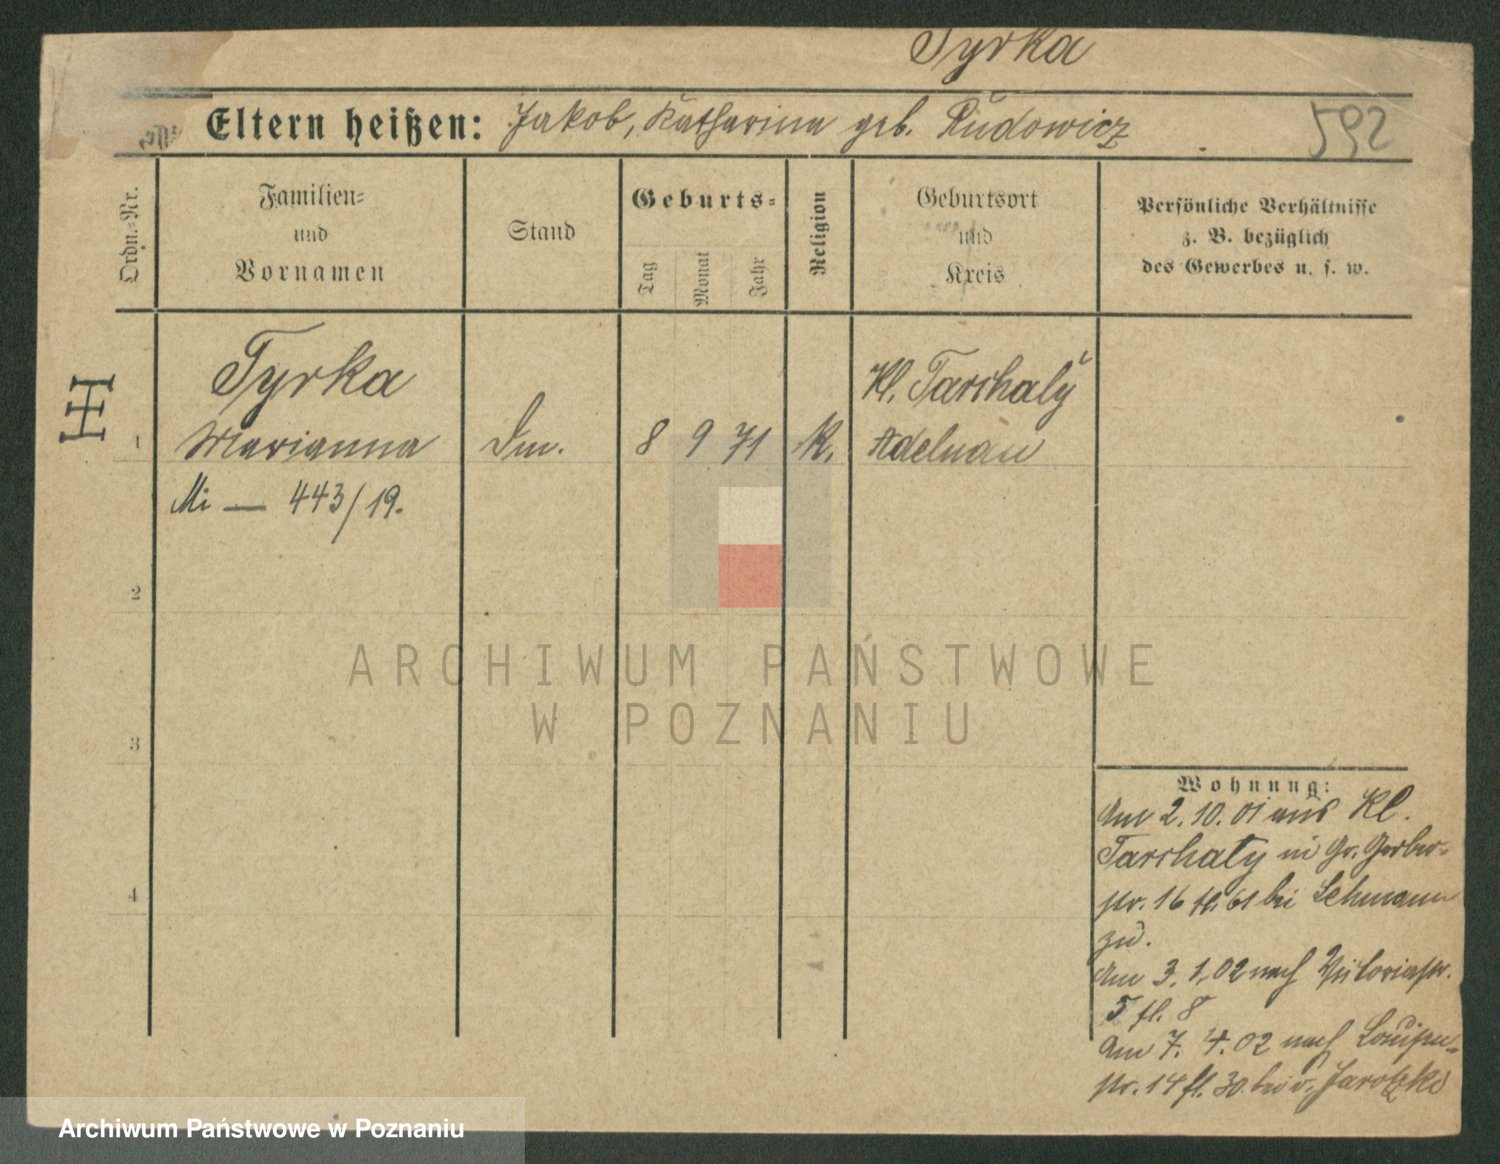 Tyrka
Eltern heißen: Jakob, Katharina geb. Rudowicz
592
Ordn.-Nr.
Familien-
und
Vornamen
Stand
Geburts-
Tag
Monat
Jahr
Religion
Geburtsort
und
Kreis
Persönliche Verhältnisse
z. B. bezüglich
des Gewerbes u. s. w.
H
Tyrka
Kl. Tarchaly
1 Marianna Dm. 8 9 71 K. Adelnau
Mi — 443/19.
2
3
4
ARCHIWUM PAŃSTWOWE
W POZNANIU
Wohnung:
Am 2. 10. 01 aus Kl.
Tarchaly in Gr. Gerber-
str. 16 fl. 61 bei Lehmann
zu.
Am 3. 1. 02 nach Viktoriastr.
5 fl. 8
Am 7. 4. 02 nach Louisen-
str. 14 fl. 30 bei v. Jarotzki
Archiwum Państwowe w Poznaniu